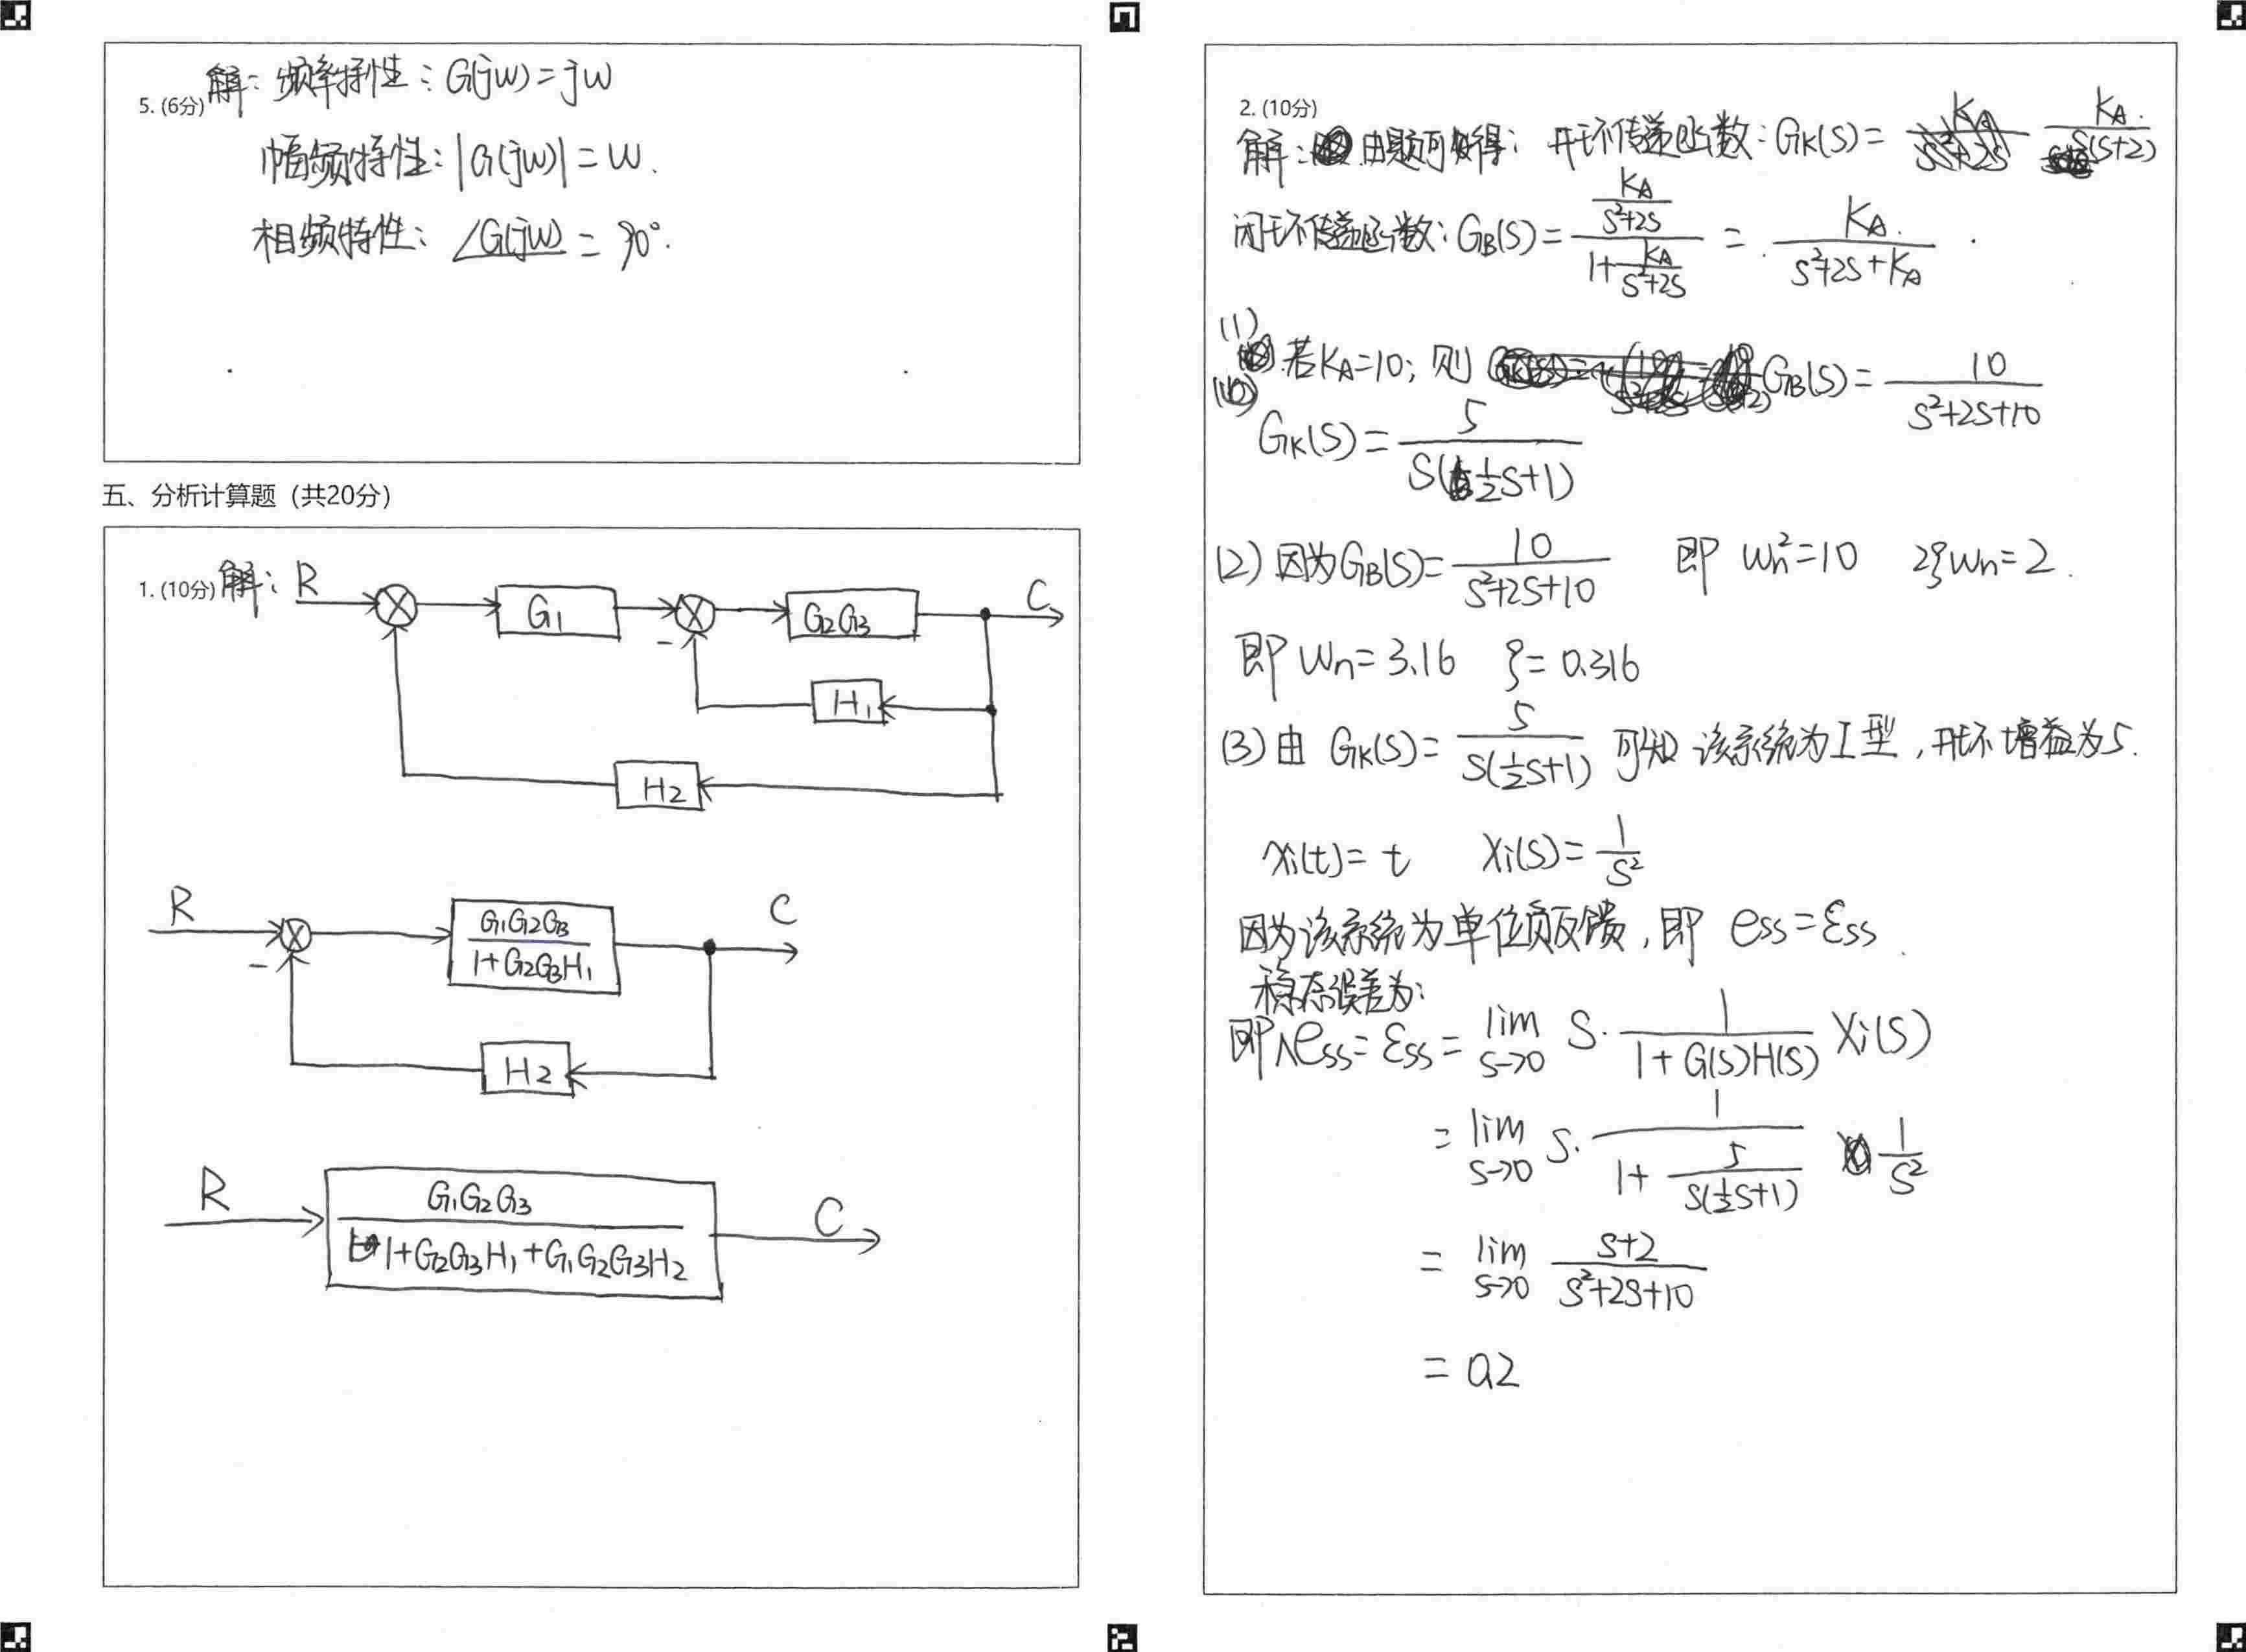 5. (6分) 解：频率特性：G(jw)=jw
幅频特性：|G(jw)|=w.
相频特性：∠G(jw)=90°.
五、分析计算题（共20分）
1. (10分) 解：
R G1 G2G3 C
-
H1
H2
R G1G2G3 / 1+G2G3H1 C
-
H2
R G1G2G3 / 1+G2G3H1+G1G2G3H2 C
2. (10分)
解：由题可知得：开环传递函数：GK(S)= KA. / S(S+2)
闭环传递函数：GB(S)= (KA / S²+2S) / (1+ KA / S²+2S) = KA. / S²+2S+KA .
(1)
若KA=10; 则 GB(S)= 10 / S²+2S+10
GK(S)= 5 / S(½S+1)
(2) 因为GB(S)= 10 / S²+2S+10 即 wn²=10 2ξwn=2.
即 wn=3.16 ξ=0.316
(3) 由 GK(S)= 5 / S(½S+1) 可知 该系统为I型，开环增益为5.
xi(t)=t Xi(S)= 1 / S²
因为该系统为单位负反馈，即 ess=εss.
稳态误差为：
即∧ess=εss= lim S→0 S· 1 / 1+G(S)H(S) Xi(S)
= lim S→0 S· 1 / (1+ 5 / S(½S+1)) 1 / S²
= lim S→0 S+2 / S²+2S+10
= 0.2